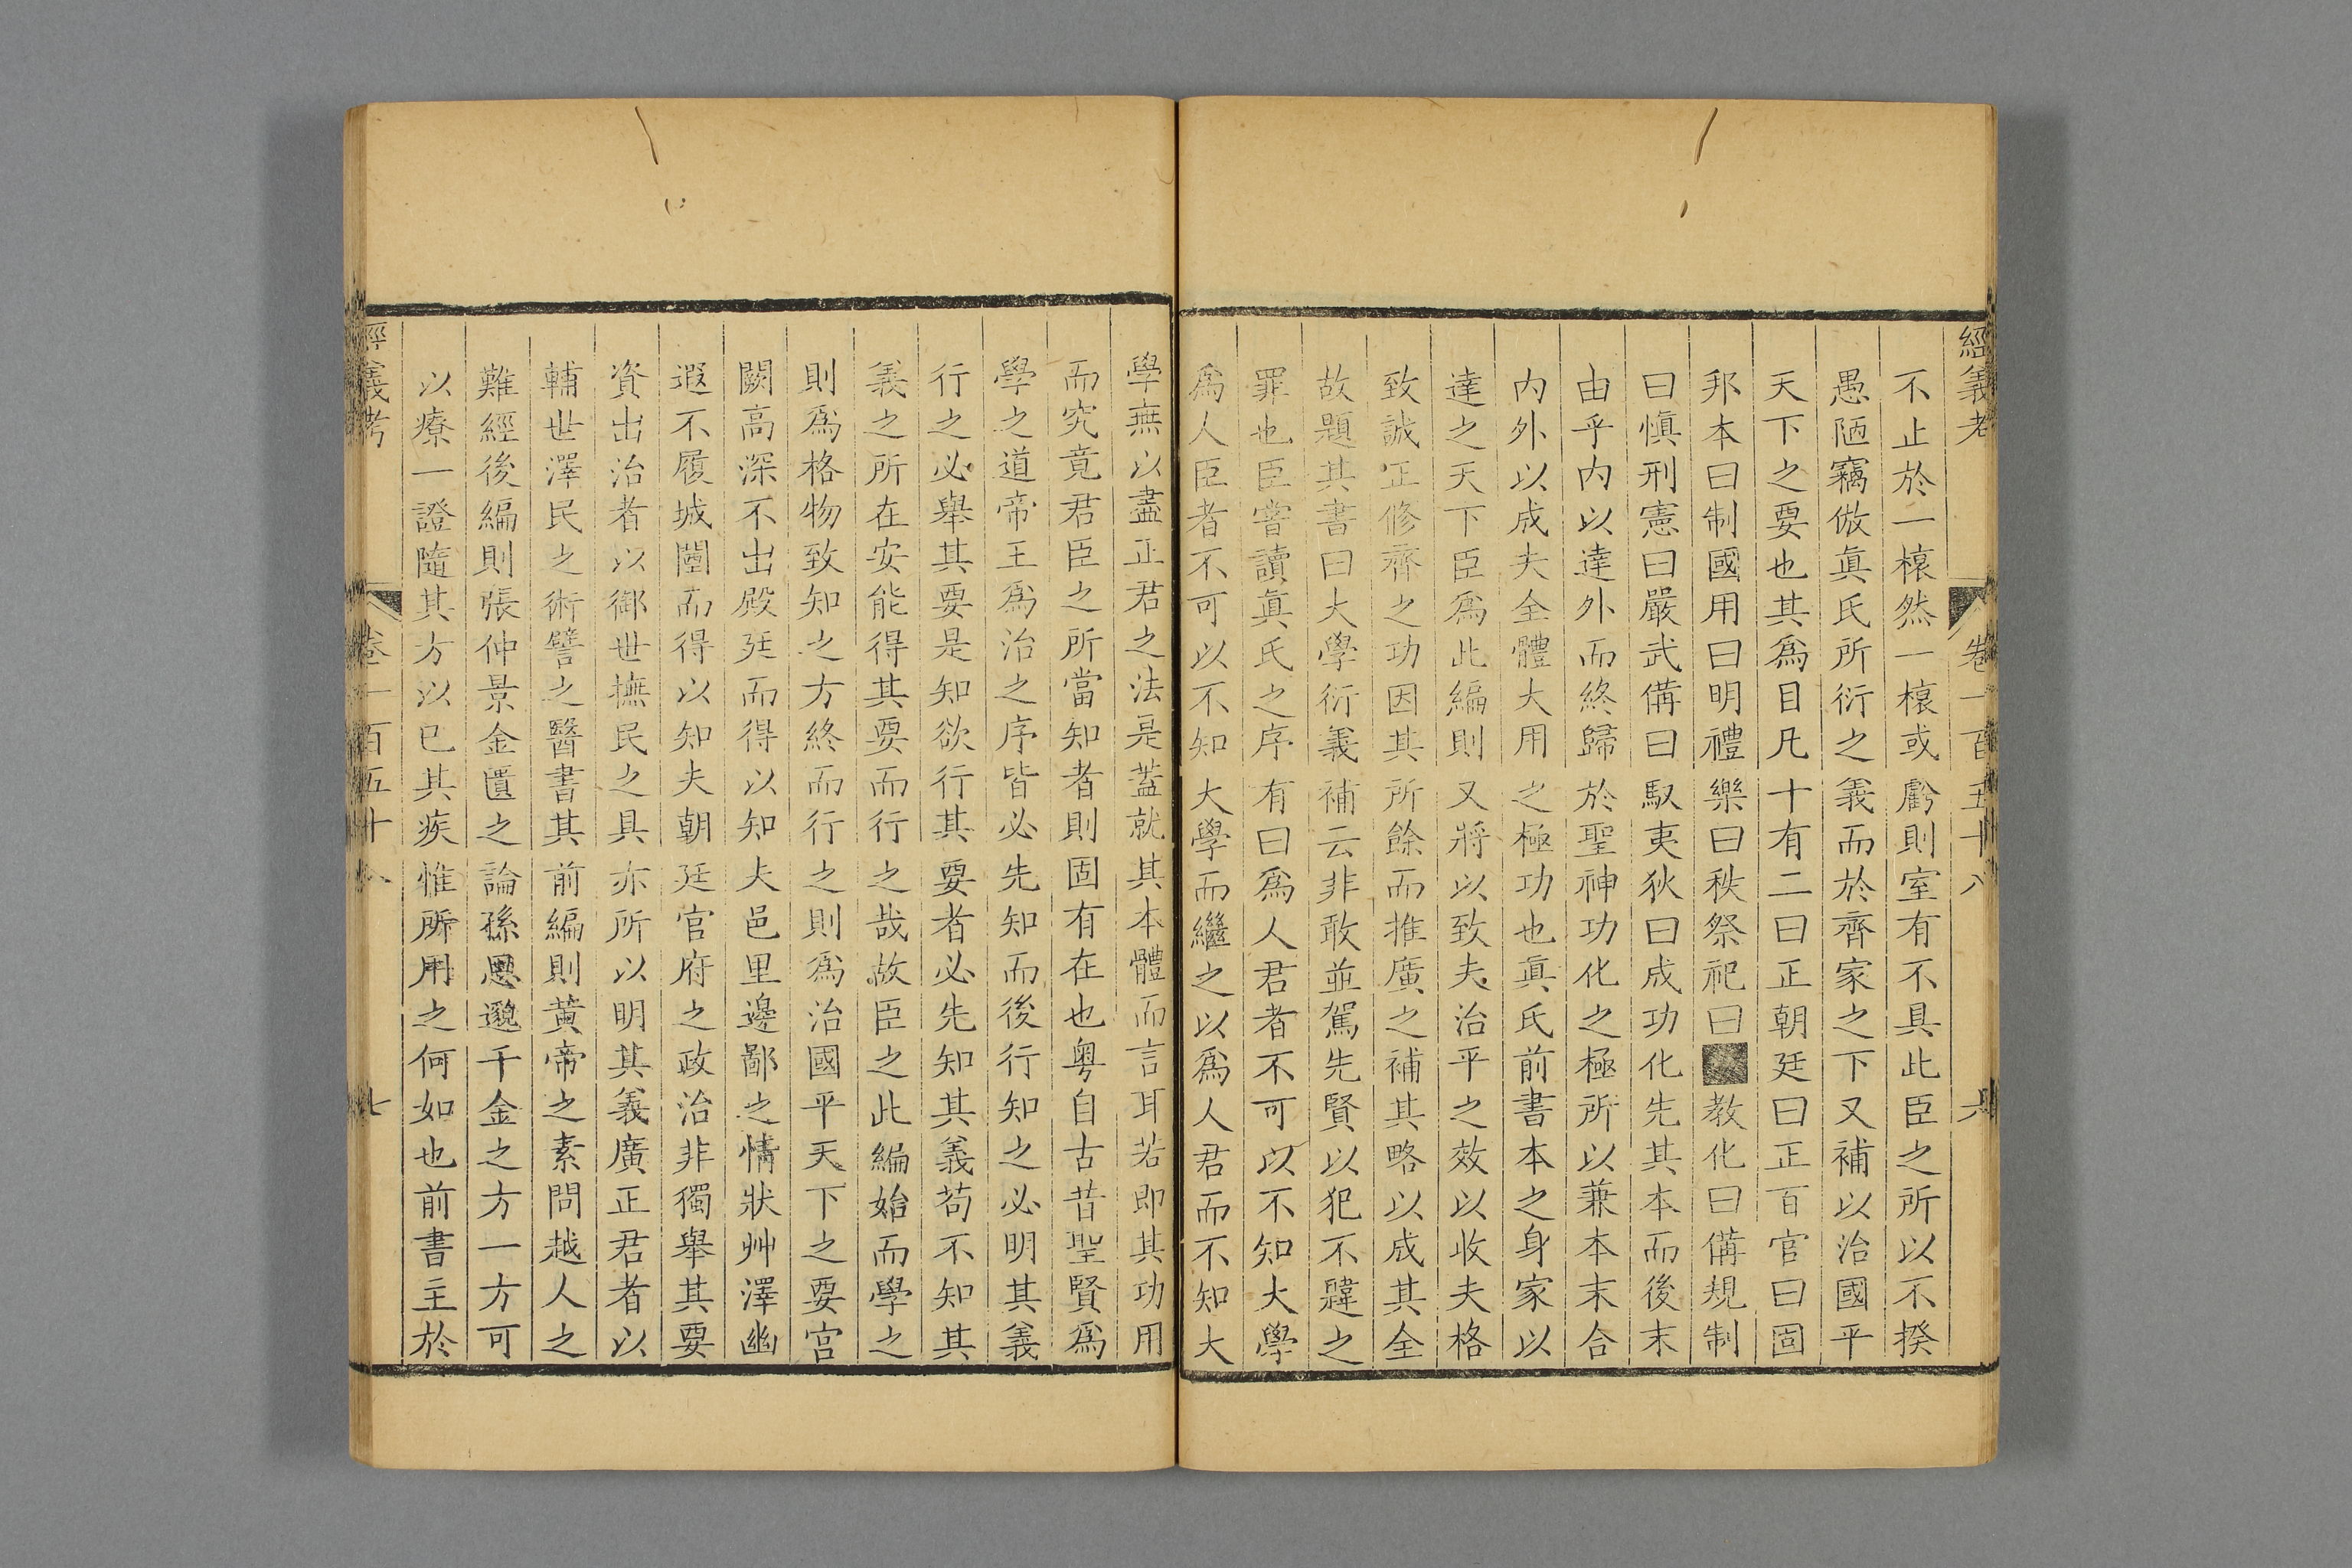 經義考 卷一百五十八 六
不止於一榱然一榱或虧則室有不具此臣之所以不揆
愚陋竊倣眞氏所衍之義而於齊家之下又補以治國平
天下之要也其爲目凡十有二曰正朝廷曰正百官曰固
邦本曰制國用曰明禮樂曰秩祭祀曰教化曰備規制
曰愼刑憲曰嚴武備曰馭夷狄曰成功化先其本而後末
由乎內以達外而終歸於聖神功化之極所以兼本末合
內外以成夫全體大用之極功也眞氏前書本之身家以
達之天下臣爲此編則又將以致夫治平之效以收夫格
致誠正修齊之功因其所餘而推廣之補其略以成其全
故題其書曰大學衍義補云非敢並駕先賢以犯不韙之
罪也臣嘗讀眞氏之序有曰爲人君者不可以不知大學
爲人臣者不可以不知大學而繼之以爲人君而不知大
學無以盡正君之法是蓋就其本體而言耳若卽其功用
而究竟君臣之所當知者則固有在也粵自古昔聖賢爲
學之道帝王爲治之序皆必先知而後行知之必明其義
行之必舉其要是知欲行其要者必先知其義苟不知其
義之所在安能得其要而行之哉故臣之此編始而學之
則爲格物致知之方終而行之則爲治國平天下之要宮
闕高深不出殿廷而得以知夫邑里邊鄙之情狀艸澤幽
遐不履城闉而得以知夫朝廷官府之政治非獨舉其要
資出治者以御世撫民之具亦所以明其義廣正君者以
輔世澤民之術譬之醫書其前編則黃帝之素問越人之
難經後編則張仲景金匱之論孫思邈千金之方一方可
以療一證隨其方以已其疾惟所用之何如也前書主於
經義考 卷一百五十八 七